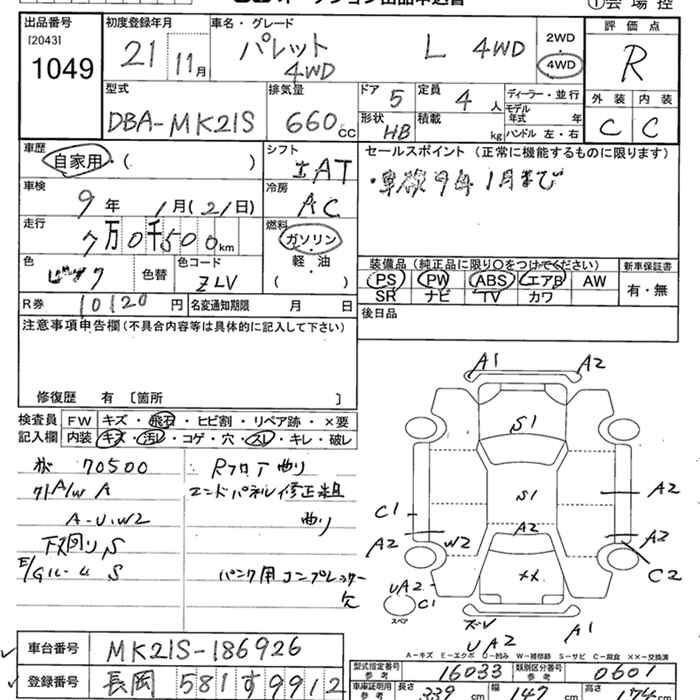 出品番号 初度登録年月 車名・グレード ①会場控
[2043] 評価点
1049 21 11月 パレット L 4WD 2WD
4WD 4WD R
型式 排気量 ドア 5 定員 4人 ディーラー・並行 外装 内装
モデル年式 年
DBA-MK21S 660cc 形状 HB 積載 kg ハンドル 左・右 C C
車歴 シフト セールスポイント (正常に機能するものに限ります)
自家用・( ) AT
車検 冷房 ・車検9年1月まで
9年 1月(21日) AC
走行 燃料
7万0千500km ガソリン
色 色替 色コード 軽・油 装備品 (純正品に限り○をつけてください) 新車保証書
ピンク ZLV ( ) PS PW ABS エアB AW 有・無
SR ナビ TV カワ
R券 10120円 名変通知期限 月 日 後日品
注意事項申告欄(不具合内容等は具体的に記入して下さい)
修復歴 有 [箇所 ]
検査員 FW キズ・飛石・ヒビ割・リペア跡・×要
記入欄 内装 キズ・汚レ・コゲ・穴・スレ・キレ・破レ
70500 Rフロア曲り
外A/W A エンドパネル修正組
A-U.W2 曲り
下回りS
E/Gルーム S パンク用コンプレッサー
欠
A1 A2
S1
C1 S1 A2
A2 W2 A2 A2
C2
UA2 XX
C1
スペア
UA2 A1
A-キズ E-エクボ U-凹み W-補修跡 S-サビ C-腐食 XX-交換済
車台番号 MK21S-186926
型式指定番号 参考 16033 類別区分番号 参考 0601
登録番号 長岡 581す9912
車庫証明用 参考 長さ 339cm 幅 147cm 高さ 174cm